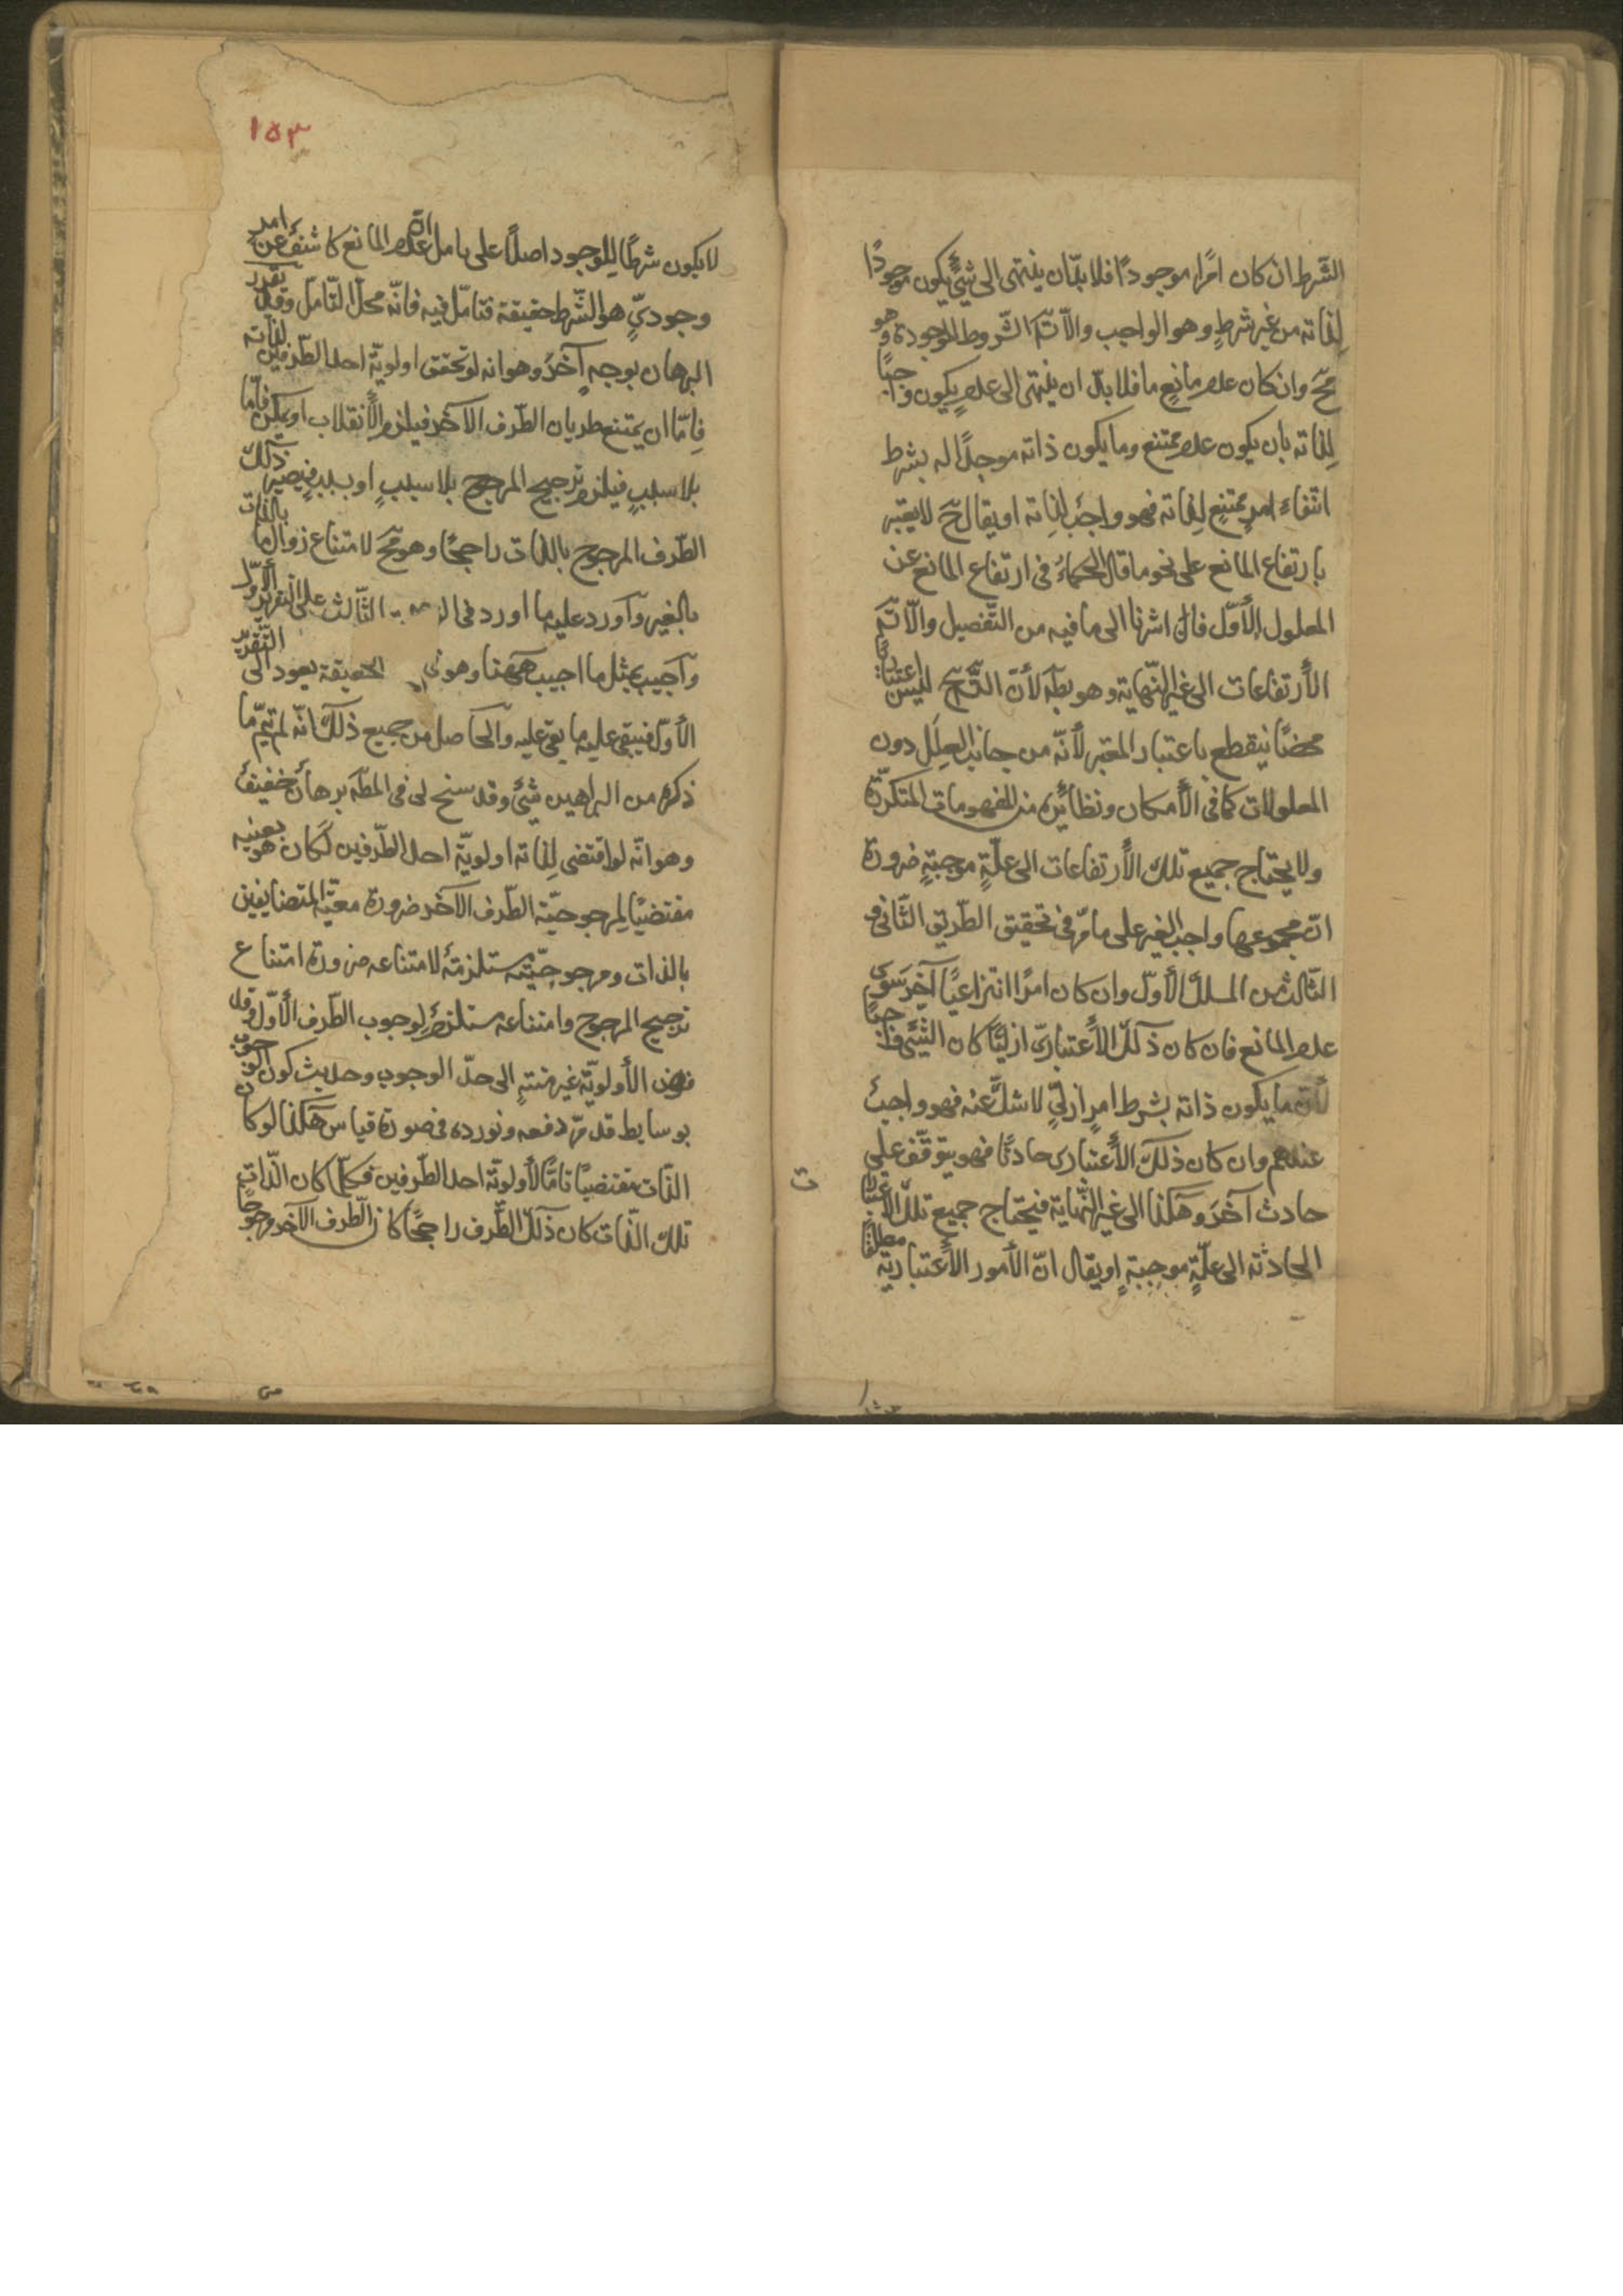 الشّرط ان كان امرًا موجودًا فلا بدّ ان ينتهى الى شئٍ يكون موجودًا
لِذاته من غير شرطٍ وهو الواجب والّا تسَهَ الشّروط الموجودة وهو
مَحّ وان كان عدم مانعٍ ما فلا بدّ ان ينتهى الى عدمٍ يكون واجبًا
لِذاته بان يكون عدم ممتنع وما يكون ذاته موجدًا له بشرط
انتفاء امرٍ ممتنعٍ لِذاته فهو واجبٌ لِذاته او يقال حَ لا يعتبر
بارتفاع المانع على نحو ما قال الحكماءُ فى ارتفاع المانع عن
المعلول الأوّل فان اشرنا الى ما فيه من التّفصيل والّا تسَهَ
الأرتفاعات الى غير النّهاية وهو بطَهَ لأنّ التّسَهَ حَ ليس اعتباريًّا
محضًا ينقطع باعتبار المعتبر لأنّه من جانب العِلَل دون
المعلولات كما فى الأمكان ونظائره من المفهومات المتكرّرة
ولا يحتاج جميع تلك الأرتفاعات الى علّةٍ موجبةٍ ضرورة
انّ مجموعها واجب الغير على ما مرّ فى تحقيق الطّريق الثّانى و
الثّالث من المسلك الأوّل وان كان امرًا انتزاعيًّا آخر سَوى
عدم المانع فان كان ذلك الأعتبارىّ ازليًّا كان الشّئ واجبًا
لأنّ ما يكون ذاته بشرط امرٍ ازلىٍّ لا شكّ عنه فهو واجبٌ
عندهم وان كان ذلك الأعتبارى حادثًا فهو يتوقّف على
حادث آخَرَ وهَكذا الى غير النّهاية فيحتاج جميع تلك الأعتباريات
الحادثة الى علّةٍ موجِبةٍ او يقال انّ الأمور الأعتباريّة مطلقًا
ت
١٥٣
لا يكون شرطًا للوجود اصلًا على ما مل انّ عدم المانع كاشفٌ عن امر
وجودىٍّ هو الشّرط حقيقة فتامّل فيه فانّه محلّ التّامّل وقد تقرر
البرهان بوجهٍ آخَرَ وهو انه لو تحقق اولويّة احد الطّرفين لذاته
فِامّا ان يمتنع طريان الطّرف الآخر فيلزم الأنقلاب او يمكن فامّا
بلا سببٍ فيلزم ترجيح المرجوح بلا سببٍ او بسببٍ فيصير ذلك
الطّرف المرجوح بالذات راجحًا وهو مَحّ لامتناع زوال ما بالذات
بالغير وآورد عليه ما اورد فى الثّالث على التقرير الأوّل
وآجيب بمثل ما اجيب هٰهنا وهو فى الحقيقة يعود الى التّقرير
الأوّل فيبقى عليه ما بقى عليه والحاصل من جميع ذلك انّه لم يتمّ ما
ذكره من البراهين شئٌ وقد سنح لى فى المطَهَ برهانٌ خفيفٌ
وهو انّه لو اقتضى لِذاته اولويّة احد الطّرفين لَكان هو بعينه
مقتضيًا لِمرجوحيّة الطّرف الآخر ضرورة معيّة المتضايفين
بالذات ومرجوحيّته مستلزمةٌ لامتناعه ضرورة امتناع
ترجيح المرجوح وامتناعه مستلزمٌ لِوجوب الطّرف الأوّل وقد
فرض الأولويّة غير منتهٍ الى حدّ الوجوب وحديث كون الوجوب
بوسايط قد مرّ دفعه ونورده فى صورة قياس هَكذا لو كان
الذّات مقتضيًا تامًّا لأولويّة احد الطّرفين فكلّما كان الذّات
تلك الذّات كان ذلك الطّرف راجحًا كان الطّرف الآخر مرجوحًا